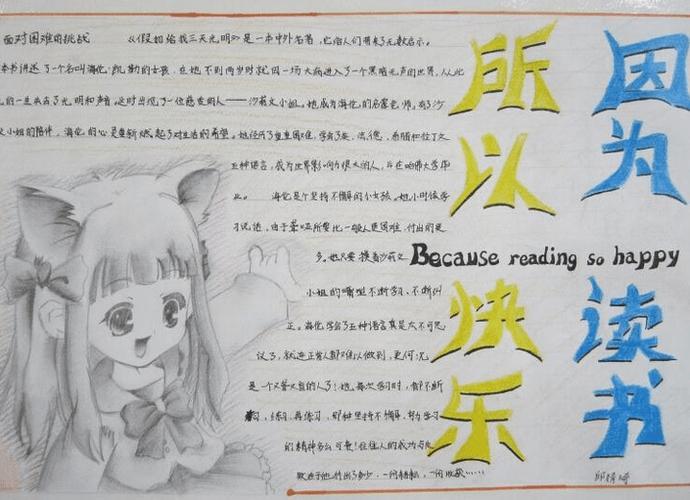 面对困难的挑战 《假如给我三天光明》是一本中外名著，它给人们带来了无数启示。
本书讲述了一个名叫海伦·凯勒的女孩，在她不到两岁时就因一场大病进入了一个黑暗无声的世界，从此
的一生失去了光明和声音。这时出现了一位慈爱的人——沙莉文小姐。她成为海伦的启蒙老师，有了沙
文小姐的陪伴，海伦的心是重新燃起了对生活的希望。她经历了重重困难，学会了英、法、德、希腊和拉丁文
五种语言，成为世界影响力很大的人，并在哈佛大学毕
业。 海伦是个坚持不懈的小女孩。她小时候学
习说话，由于聋哑所要比一般人更困难，付出的更
多。她只要摸着沙莉文
小姐的嘴唇不断学习、不断纠
正。海伦学会了五种语言真是太不可思
议了，就连正常人都难以做到，更何况
是一个又聋又盲的人了！她每次学习时，都不断
练习，再练习，那种坚持不懈、努力学习
的精神多么可贵！往往人的成功与失
败在于他付出了多少，一份耕耘，一份收获……
因为
所以
Because reading so happy
读书
快乐